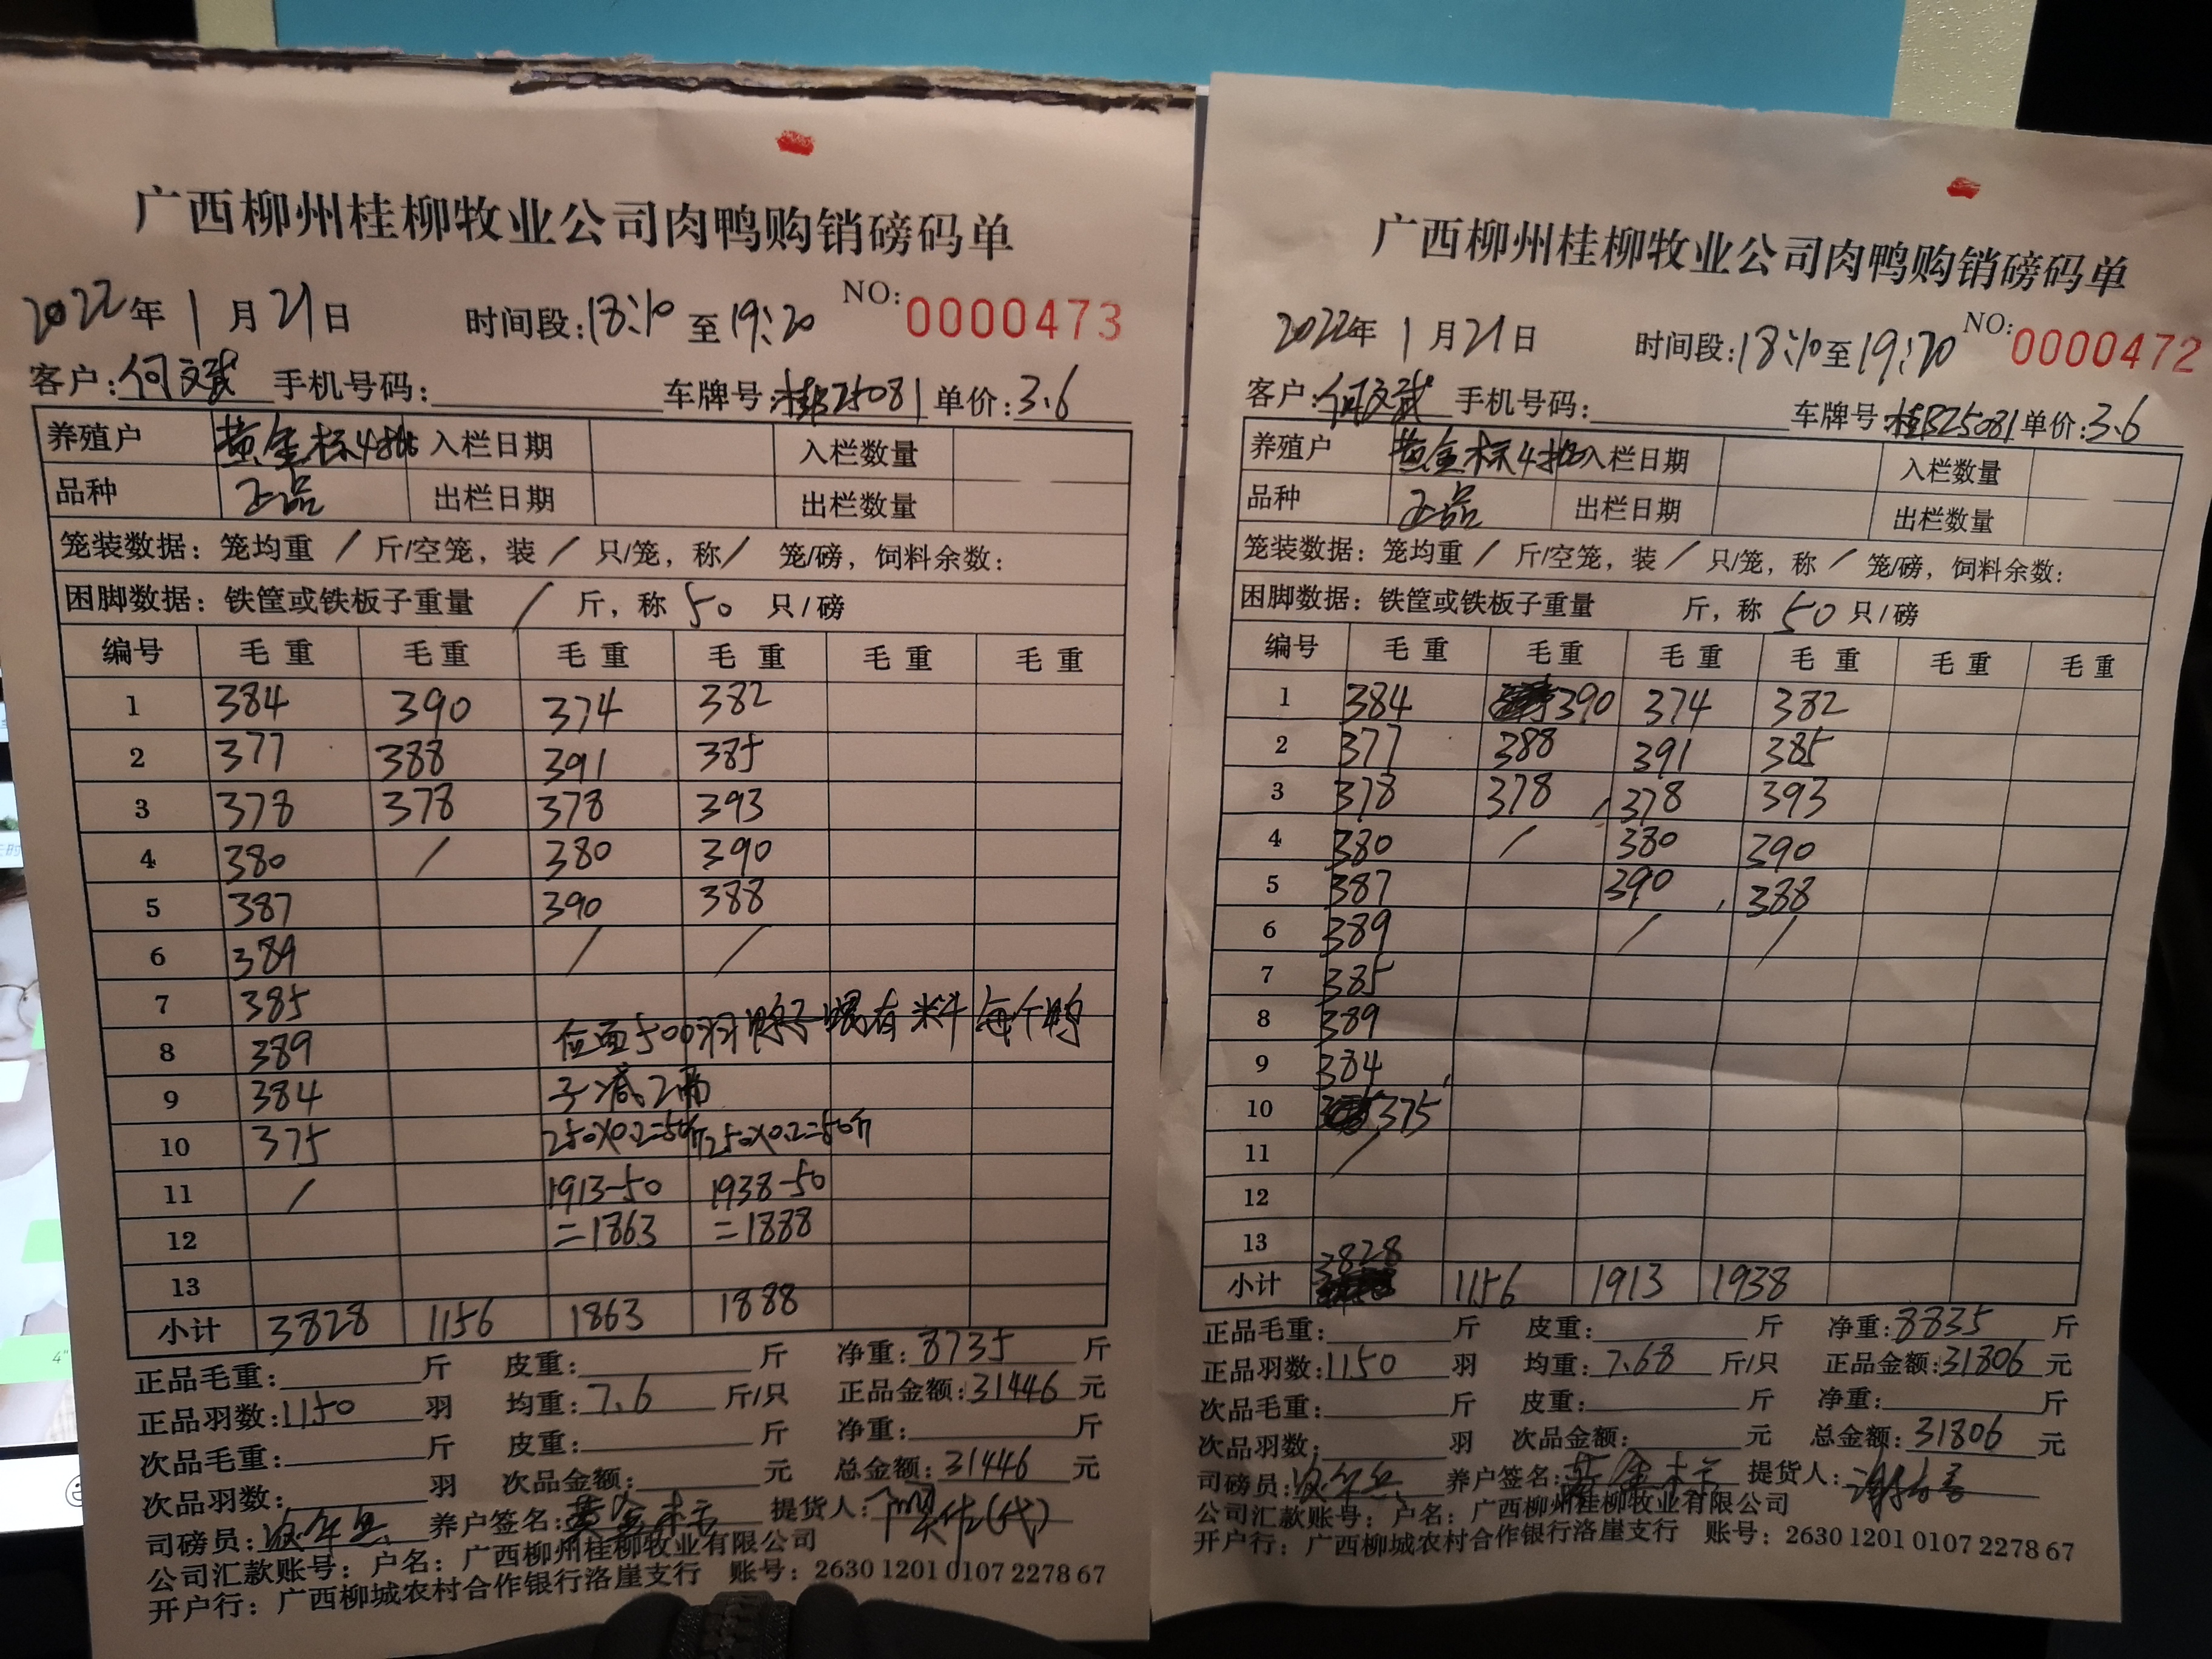 广西柳州桂柳牧业公司肉鸭购销磅码单
2022年 1月 21日 时间段:18:10 至 19:20 NO: 0000473
客户:何文斌 手机号码: 车牌号:桂B25081 单价:3.6
养殖户 黄金标4批 入栏日期 入栏数量
品种 正品 出栏日期 出栏数量
笼装数据: 笼均重 / 斤/空笼, 装 / 只/笼, 称 / 笼/磅, 饲料余数:
困脚数据: 铁筐或铁板子重量 / 斤, 称 50 只/磅
编号 毛重 毛重 毛重 毛重 毛重 毛重
1 384 390 374 382
2 377 388 391 385
3 378 378 378 393
4 380 / 380 390
5 387 390 388
6 389 / /
7 385
8 389 500羽鸭子喂有料 每个鸭
9 384 子减2两
10 375 250×0.2=50斤 250×0.2=50斤
11 / 1913-50 1938-50
12 =1863 =1888
13
小计 3828 1156 1863 1888
正品毛重: 斤 皮重: 斤 净重:8735 斤
正品羽数:1150 羽 均重:7.6 斤/只 正品金额:31446 元
次品毛重: 斤 皮重: 斤 净重: 斤
次品羽数: 羽 次品金额: 元 总金额:31446 元
司磅员: 养户签名:黄金标 提货人: (代)
公司汇款账号: 户名: 广西柳州桂柳牧业有限公司
开户行: 广西柳城农村合作银行洛崖支行 账号: 2630 1201 0107 2278 67
广西柳州桂柳牧业公司肉鸭购销磅码单
2022年 1月 21日 时间段:18:10至19:20 NO: 0000472
客户:何文斌 手机号码: 车牌号:桂B25081 单价:3.6
养殖户 黄金标4批 入栏日期 入栏数量
品种 正品 出栏日期 出栏数量
笼装数据: 笼均重 / 斤/空笼, 装 / 只/笼, 称 / 笼/磅, 饲料余数:
困脚数据: 铁筐或铁板子重量 斤, 称 50 只/磅
编号 毛重 毛重 毛重 毛重 毛重 毛重
1 384 390 374 382
2 377 388 391 385
3 378 378 378 393
4 380 / 380 390
5 387 390 388
6 389 / /
7 385
8 389
9 384
10 375
11 /
12
13
小计 3828 1156 1913 1938
正品毛重: 斤 皮重: 斤 净重:8835 斤
正品羽数:1150 羽 均重:7.68 斤/只 正品金额:31806 元
次品毛重: 斤 皮重: 斤 净重: 斤
次品羽数: 羽 次品金额: 元 总金额:31806 元
司磅员: 养户签名:黄金标 提货人:
公司汇款账号: 户名: 广西柳州桂柳牧业有限公司
开户行: 广西柳城农村合作银行洛崖支行 账号: 2630 1201 0107 2278 67